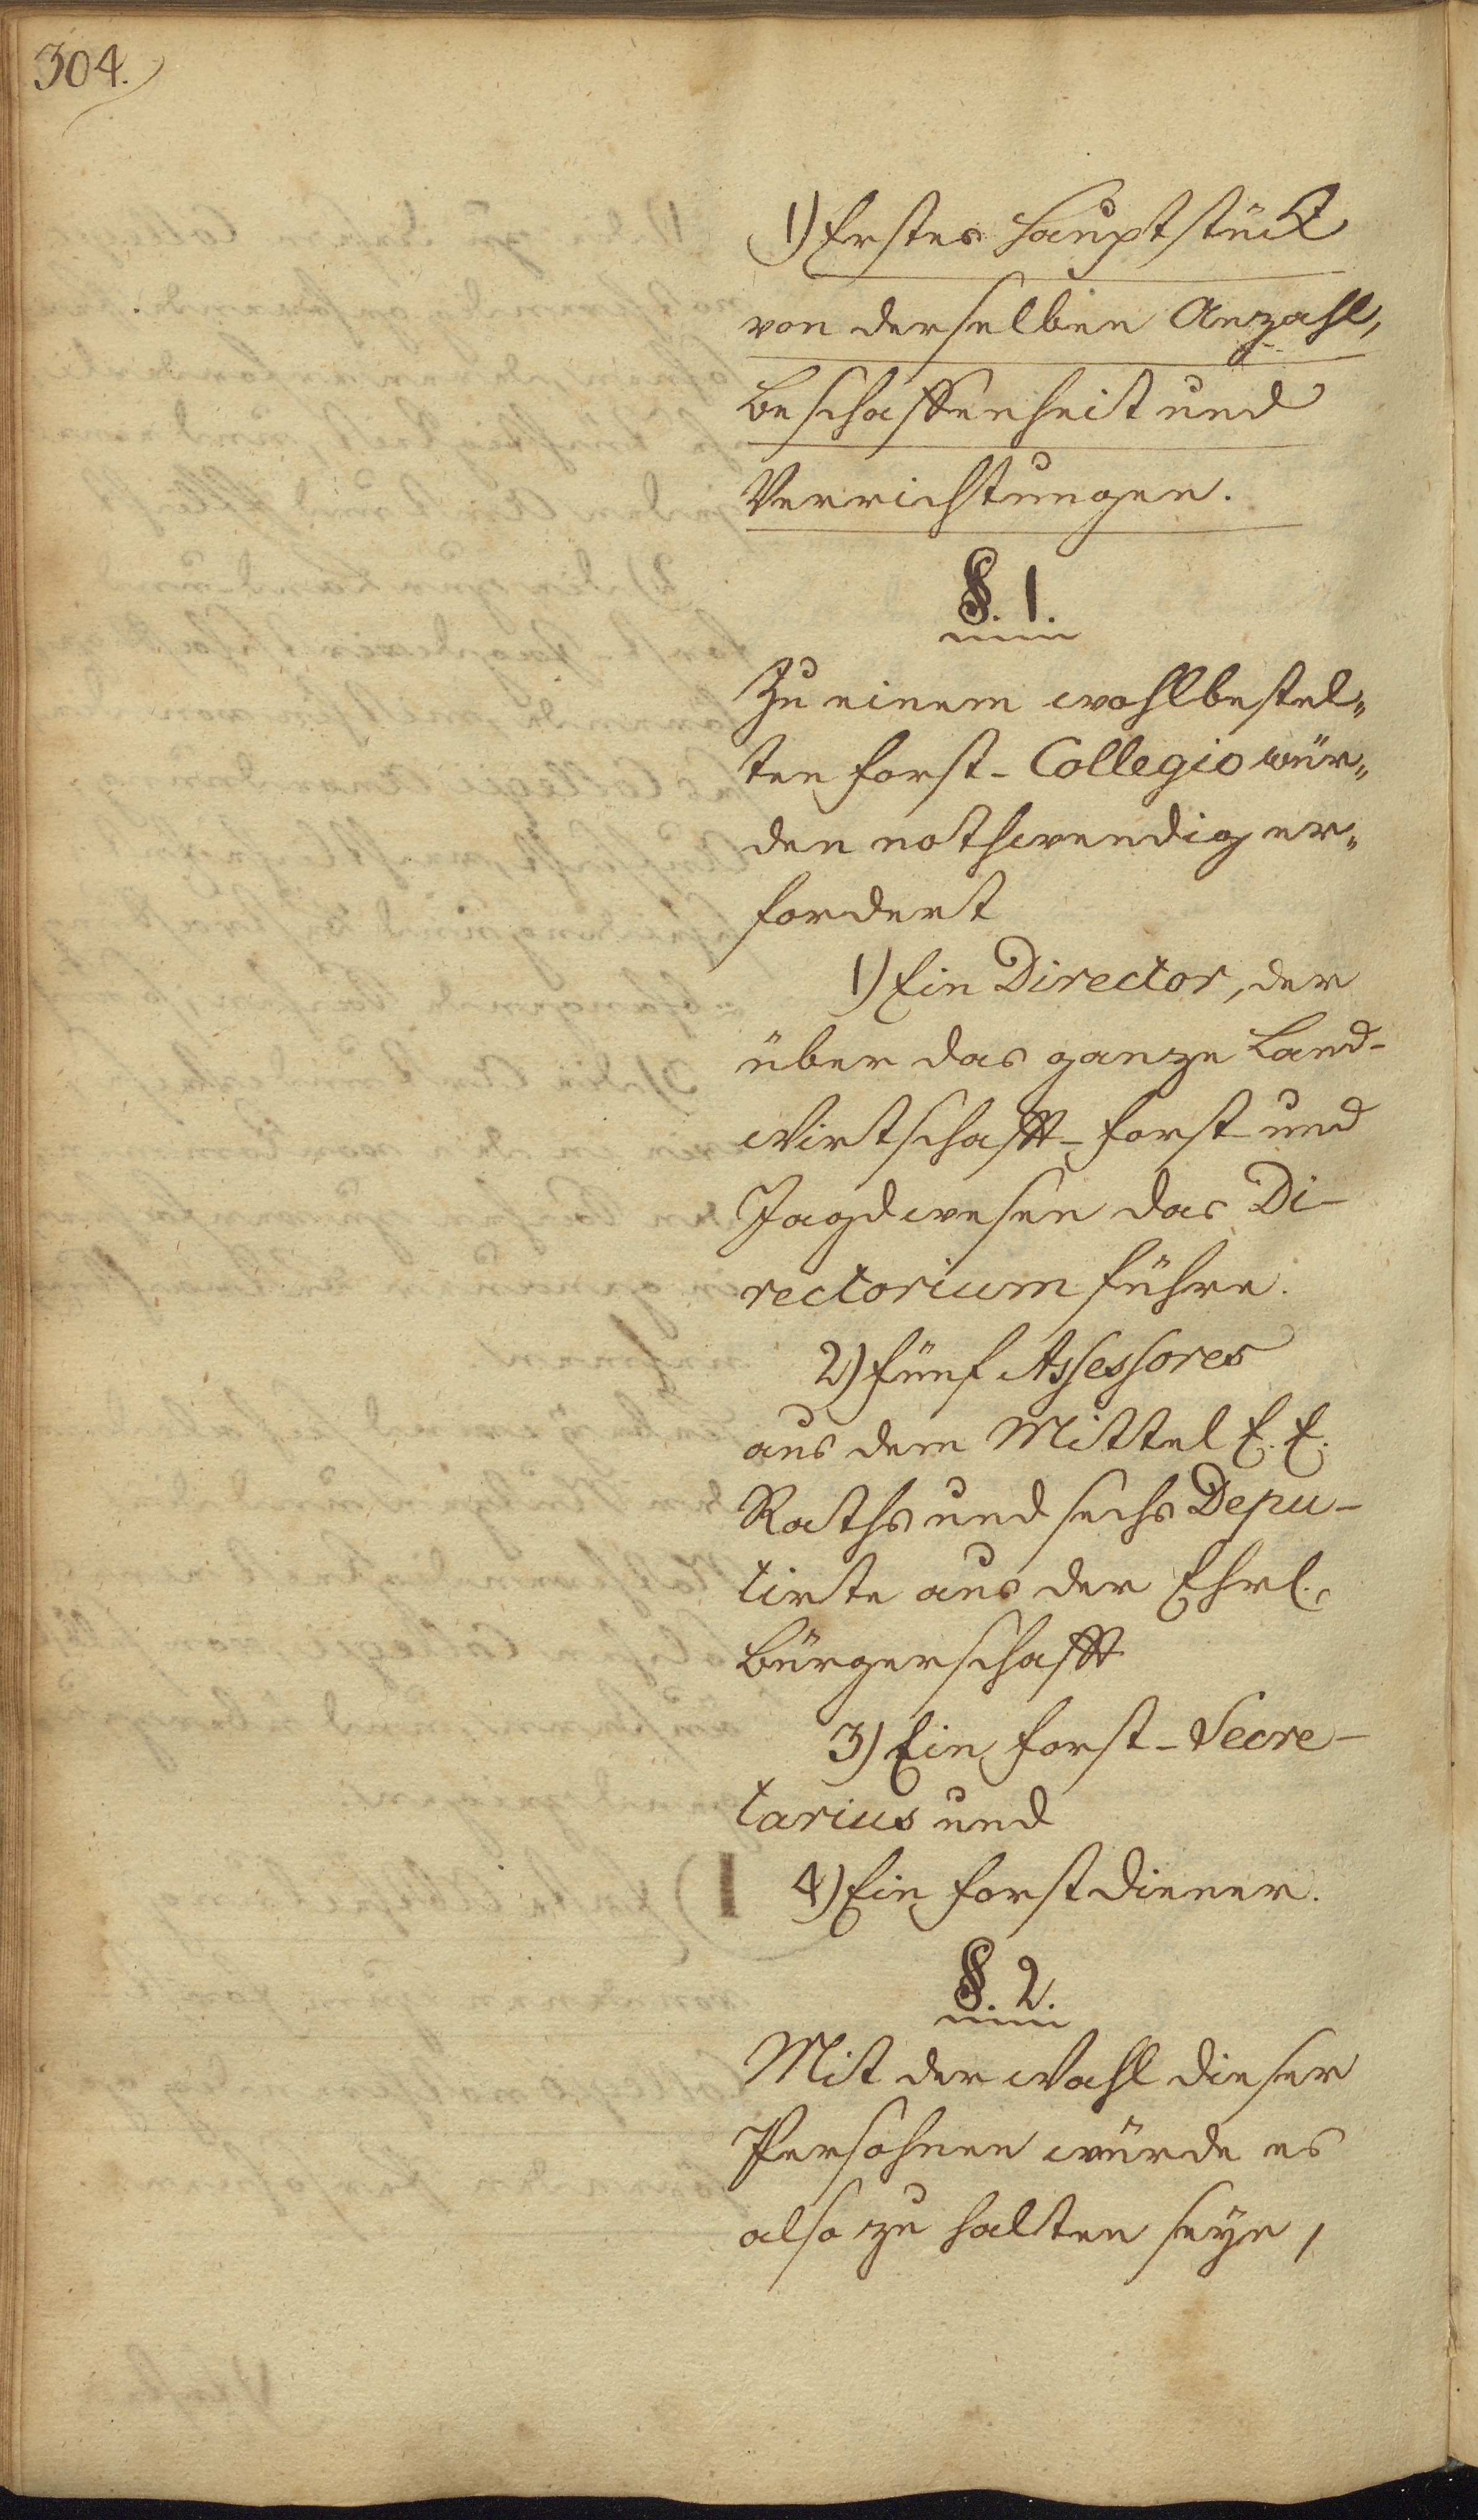 304.
1) Erstes Hauptstück
von derselben Anzahl,
Beschaffenheit und
Verrichtungen.
§. 1.
Zu einem wohlbestel„
ten Forst- Collegio wür„
den nothwendig er„
fordert
1) Ein Director, der
über das ganze Land-
Wirtschafft- Forst- und
Jagdwesen das Di-
rectorium führe.
2) Fünf Assessores
aus dem Mittel E. E.
Raths und sechs Depu-
tirte aus der Ehrl.
Bürgerschafft
3) Ein Forst- Secre-
tarius und
4) Ein Forstdiener.
§. 2.
Mit der Wahl dieser
Persohnen würde es
also zu halten seyn,